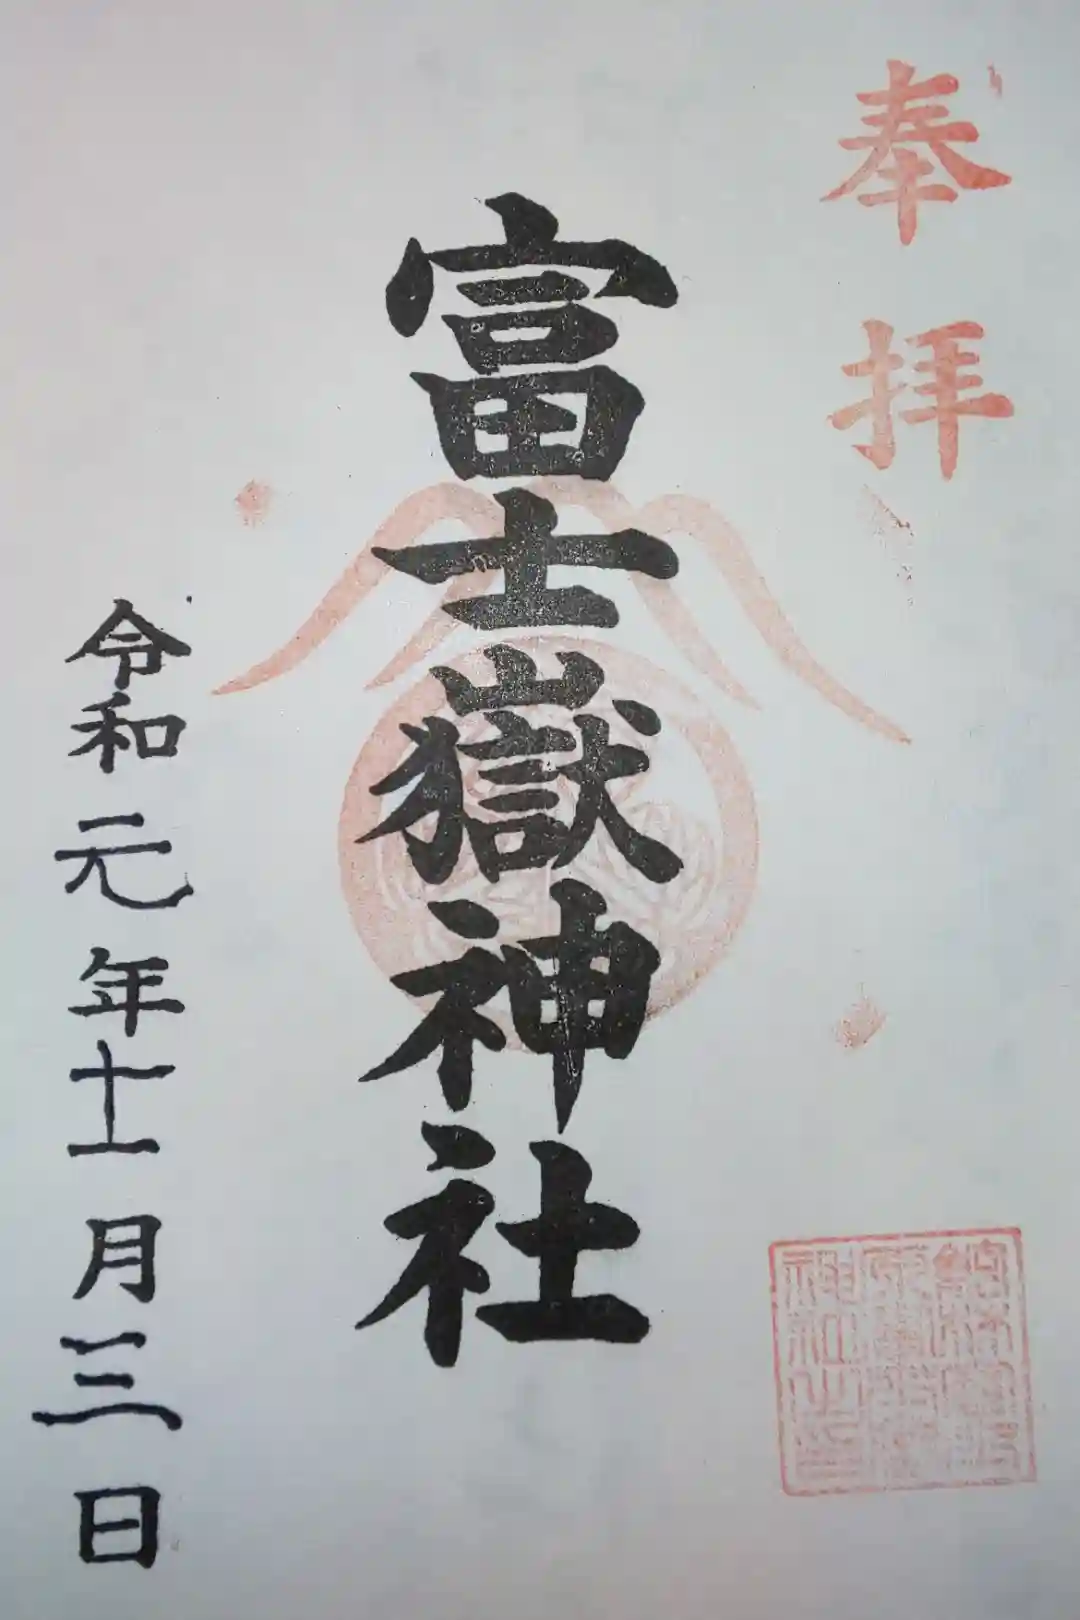 奉拝
富士嶽神社
令和元年十一月三日